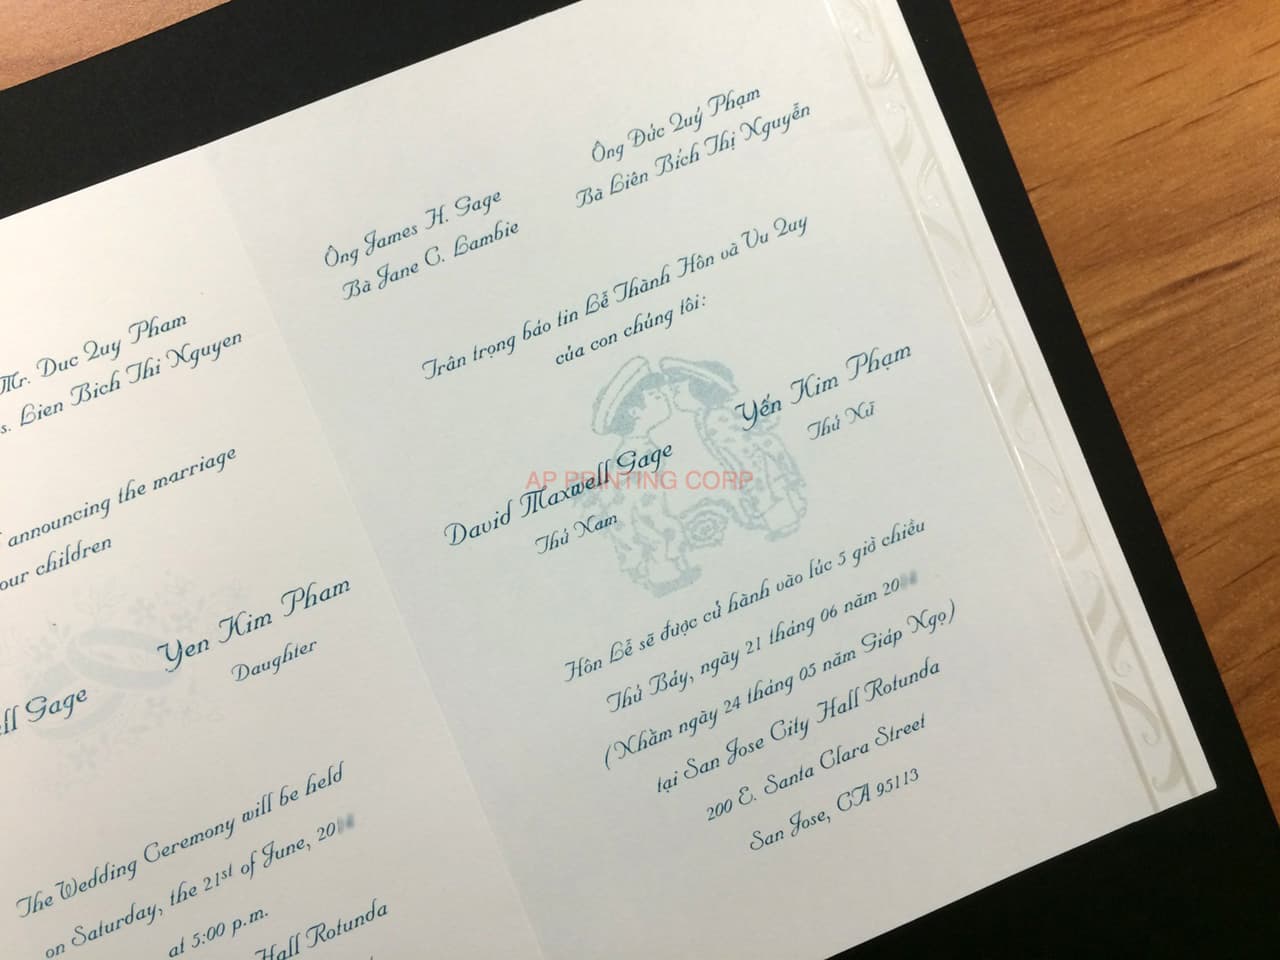 Mr. Duc Quy Pham
s. Lien Bich Thi Nguyen
announcing the marriage
our children
Yen Kim Pham
Daughter
ll Gage
The Wedding Ceremony will be held
on Saturday, the 21st of June, 20
at 5:00 p.m.
Hall Rotunda
Ông James H. Gage
Bà Jane C. Lambie
Ông Đức Quý Phạm
Bà Liên Bích Thị Nguyễn
Trân trọng báo tin Lễ Thành Hôn và Vu Quy
của con chúng tôi:
David Maxwell Gage
Thứ Nam
Yến Kim Phạm
Thứ Nữ
AP PRINTING CORP
Hôn Lễ sẽ được cử hành vào lúc 5 giờ chiều
Thứ Bảy, ngày 21 tháng 06 năm 20
(Nhằm ngày 24 tháng 05 năm Giáp Ngọ)
tại San Jose City Hall Rotunda
200 E. Santa Clara Street
San Jose, CA 95113